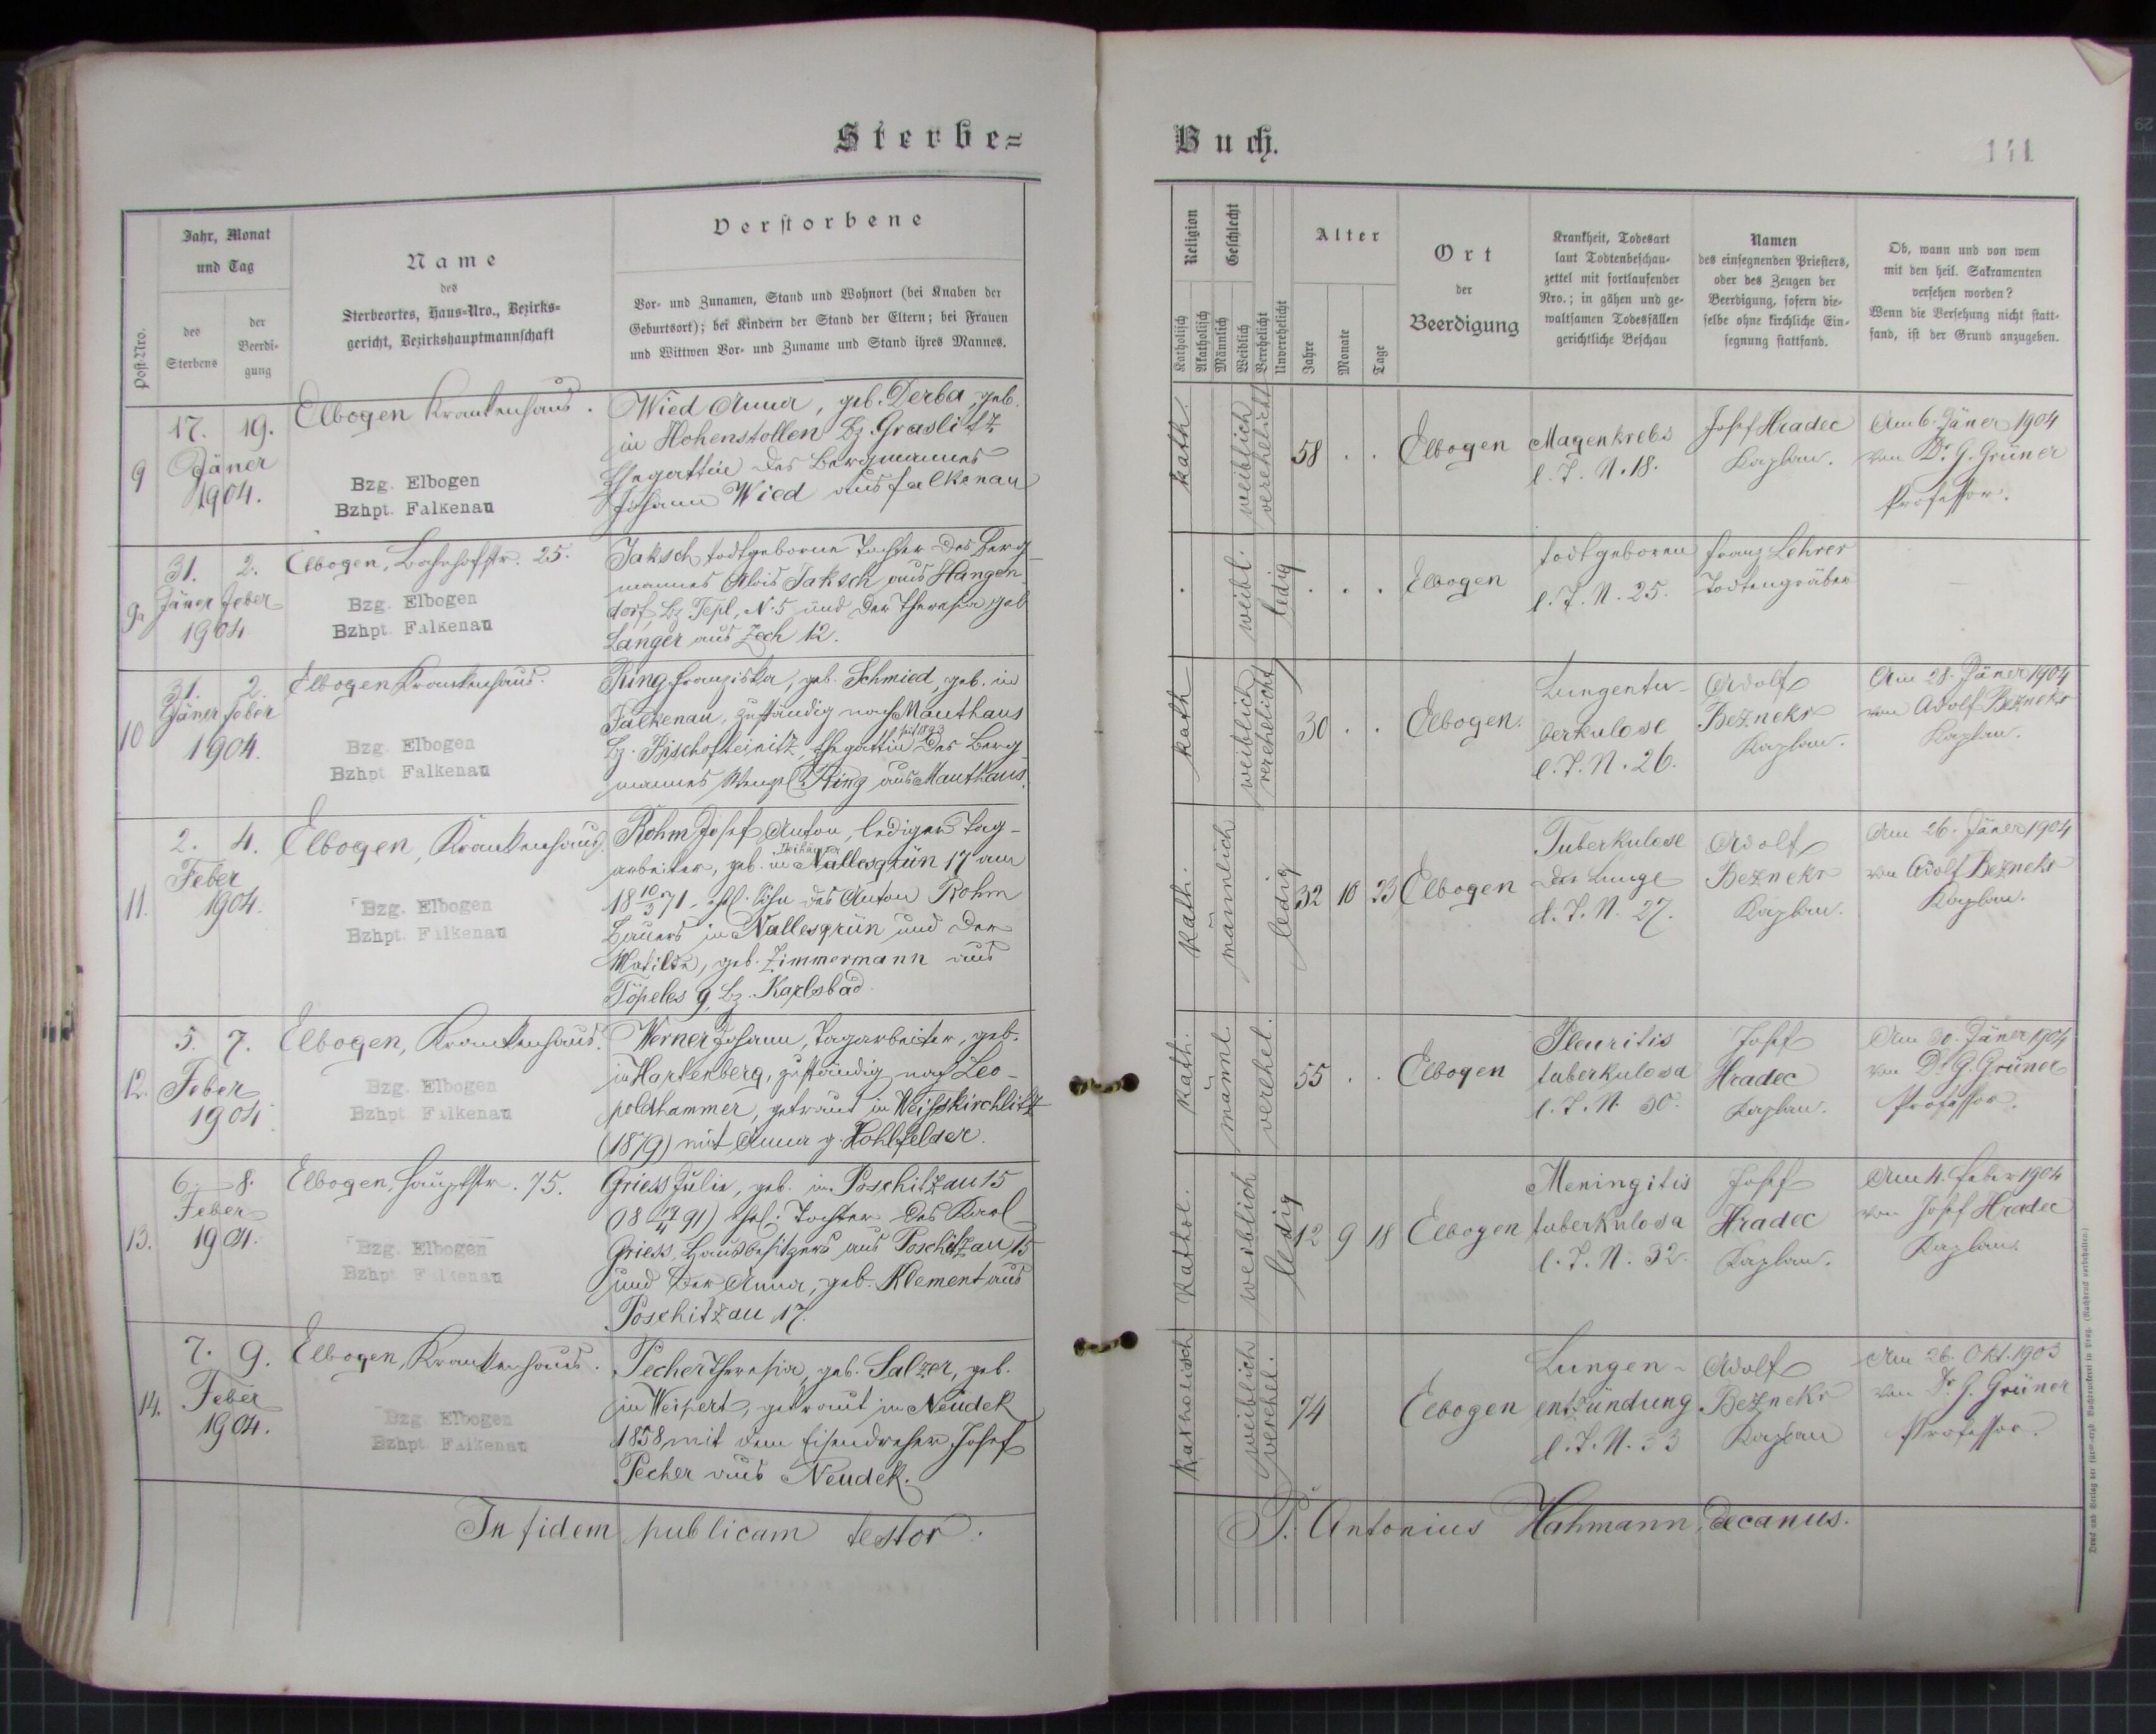 Sterbe=
Buch.
141
Post-Nro.
Jahr, Monat
und Tag
des
Sterbens
der
Beerdi-
gung
Name
des
Sterbeortes, Haus-Nro., Bezirks-
gericht, Bezirkshauptmannschaft
Verstorbene
Vor- und Zunamen, Stand und Wohnort (bei Knaben der
Geburtsort); bei Kindern der Stand der Eltern; bei Frauen
und Wittwen Vor- und Zuname und Stand ihres Mannes.
Religion
Katholisch
Akatholisch
Geschlecht
Männlich
Weiblich
Verehelicht
Unverehelicht
Alter
Jahre
Monate
Tage
Ort
der
Beerdigung
Krankheit, Todesart
laut Todtenbeschau-
zettel mit fortlaufender
Nro.; in gähen und ge-
waltsamen Todesfällen
gerichtliche Beschau
Namen
des einsegnenden Priesters,
oder des Zeugen der
Beerdigung, sofern die-
selbe ohne kirchliche Ein-
segnung stattfand.
Ob, wann und von wem
mit den heil. Sakramenten
versehen worden?
Wenn die Versehung nicht statt-
fand, ist der Grund anzugeben.
9
17. 19.
Jäner
1904.
Elbogen Krankenhaus.
Bzg. Elbogen
Bzhpt. Falkenau
Wied Anna, geb. Derba, geb.
in Hohenstollen Bz. Graslitz
Ehegattin des Bergmannes
Johann Wied aus Falkenau
kath.
weiblich
verehelicht
58 . .
Elbogen
Magenkrebs
l. T. N. 18.
Josef Hradec
Kaplan.
Am 6. Jäner 1904
von Dr. G. Grüner
Professor.
9a
31. 2.
Jäner Feber
1904
Elbogen, Bahnhofstr. 25.
Bzg. Elbogen
Bzhpt. Falkenau
Jaksch todtgeborene Tochter des Berg-
mannes Alois Jaksch aus Hangen-
dorf, Bz. Tepl, N. 5 und der Theresia geb
Langer aus Zech 12.
.
weibl.
ledig
. . .
Elbogen
todtgeboren
l. T. N. 25.
Franz Lehrer
Todtengräber
—
10
31. 2.
Jäner Feber
1904.
Elbogen Krankenhaus.
Bzg. Elbogen
Bzhpt. Falkenau
Ring Franziska, geb. Schmied, geb. in
Falkenau, zuständig nach Mauthaus
Bz. Bischofteinitz, Ehegattin des Berg-
mannes Wenzel Ring aus Mauthaus.
kath
weiblich
verehelicht
30 . .
Elbogen.
Lungentu-
berkulose
l. T. N. 26.
Adolf
Bezneks
Kaplan.
Am 28. Jäner 1904
von Adolf Bezneks
Kaplan.
11.
2. 4.
Feber
1904.
Elbogen, Krankenhaus.
Bzg. Elbogen
Bzhpt. Falkenau
Rohm Josef Anton, lediger Tag-
arbeiter, geb. in Nallesgrün 17 am
18 10/3 71. ehl. Sohn des Anton Rohm
Bauers in Nallesgrün und der
Matilda, geb. Zimmermann aus
Töpeles 9, Bz. Karlsbad
kath.
männlich
ledig
32 10 23
Elbogen
Tuberkulose
der Lunge
l. T. N. 27.
Adolf
Bezneks
Kaplan.
Am 26. Jäner 1904
von Adolf Bezneks
Kaplan.
12.
5. 7.
Feber
1904
Elbogen, Krankenhaus.
Bzg. Elbogen
Bzhpt. Falkenau
Werner Johann, Tagarbeiter, geb.
in Hartenberg, zuständig nach Leo-
poldhammer, getraut in Weisskirchlitz
(1879) mit Anna g. Hohlfelder.
kath.
männl.
verehel.
55 . .
Elbogen
Pleuritis
tuberkulosa
l. T. N. 30.
Josef
Hradec
Kaplan.
Am 30. Jäner 1904
von Dr G. Grüner
Professor.
13.
6. 8.
Feber
1904.
Elbogen, Hauptstr. 75.
Bzg. Elbogen
Bzhpt. Falkenau
Griess Julie, geb. in Poschitzau 15
(18 19/4 91) ehel. Tochter des Karl
Griess, Hausbesitzers aus Poschitzau 15
und der Anna, geb. Klement aus
Poschitzau 17.
kathol.
weiblich
ledig
12 9 18
Elbogen
Meningitis
tuberkulosa
l. T. N. 32.
Josef
Hradec
Kaplan.
Am 4. Feber 1904
von Josef Hradec
Kaplan.
14.
7. 9.
Feber
1904.
Elbogen, Krankenhaus.
Bzg. Elbogen
Bzhpt. Falkenau
Pecher Theresia, geb. Salzer, geb.
in Weipert, getraut in Neudek
1858 mit dem Eisendreher Josef
Pecher aus Neudek.
katholisch
weiblich
verehel.
74
Elbogen
Lungen-
entzündung
l. T. N. 33
Adolf
Bezneks
Kaplan
Am 26. Okt. 1903
von Dr. G. Grüner
Professor.
In fidem publicam testor.
P. Antonius Hahmann, decanus.